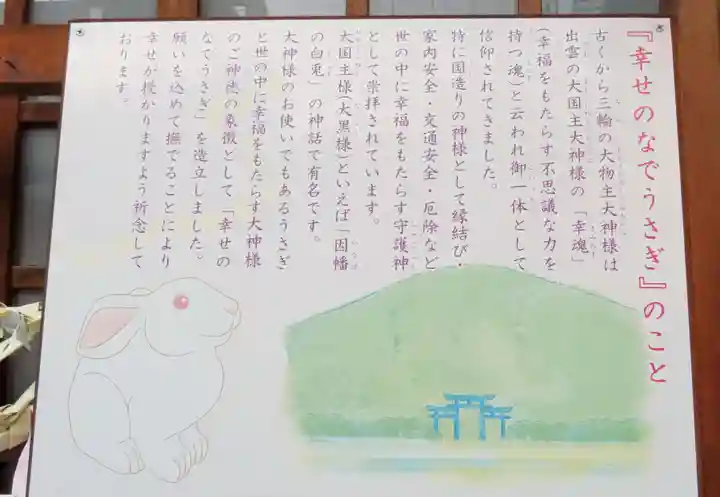 『幸せのなでうさぎ』のこと
古くから三輪の大物主大神様は
出雲の大国主大神様の「幸魂」
(幸福をもたらす不思議な力を
持つ魂)と云われ御一体として
信仰されてきました。
特に国造りの神様として縁結び・
家内安全・交通安全・厄除など
世の中に幸福をもたらす守護神
として崇拝されています。
大国主様(大黒様)といえば「因幡
の白兎」の神話で有名です。
大神様のお使いでもあるうさぎ
と世の中に幸福をもたらす大神様
のご神徳の象徴として「幸せの
なでうさぎ」を造立しました。
願いを込めて撫でることにより
幸せが授かりますよう祈念して
おります。